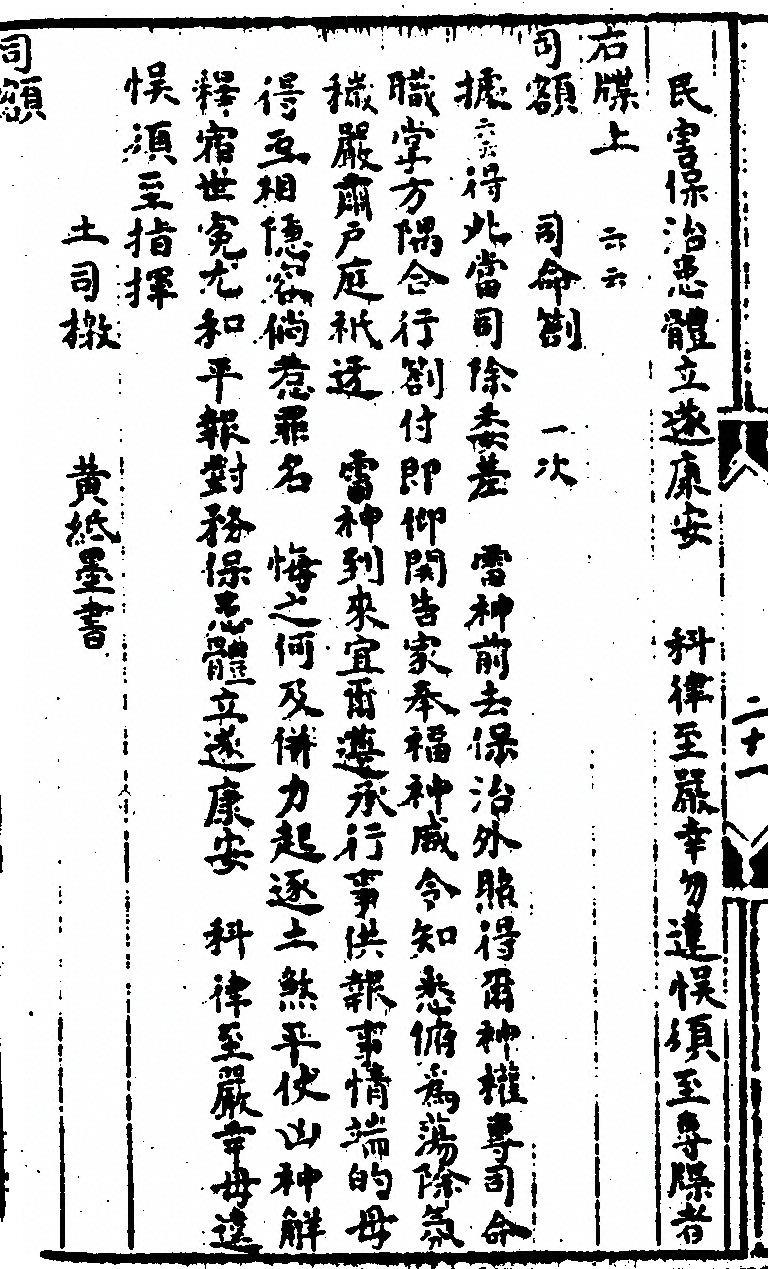 民害保治患體立遂康安　科律至嚴幸勿違悞須至專牒者
右牒上　云云
司額　司命劄　一次
據云云得此當司除委差　雷神前去保治外照得爾神權專司命
職掌方隅合行劄付即仰関告家奉福神威令知悉俯為蕩除氛
穢嚴肅戶庭祇迓　雷神到來宜爾遵承行事供報事情端的毋
得互相隱容倘惹罪名　悔之何及併力起逐土煞平伏凶神解
釋宿世冤尤和平報對務保患體立遂康安　科律至嚴幸毋違
悞須至指揮
土司檄　黃紙墨書
司額
二十一